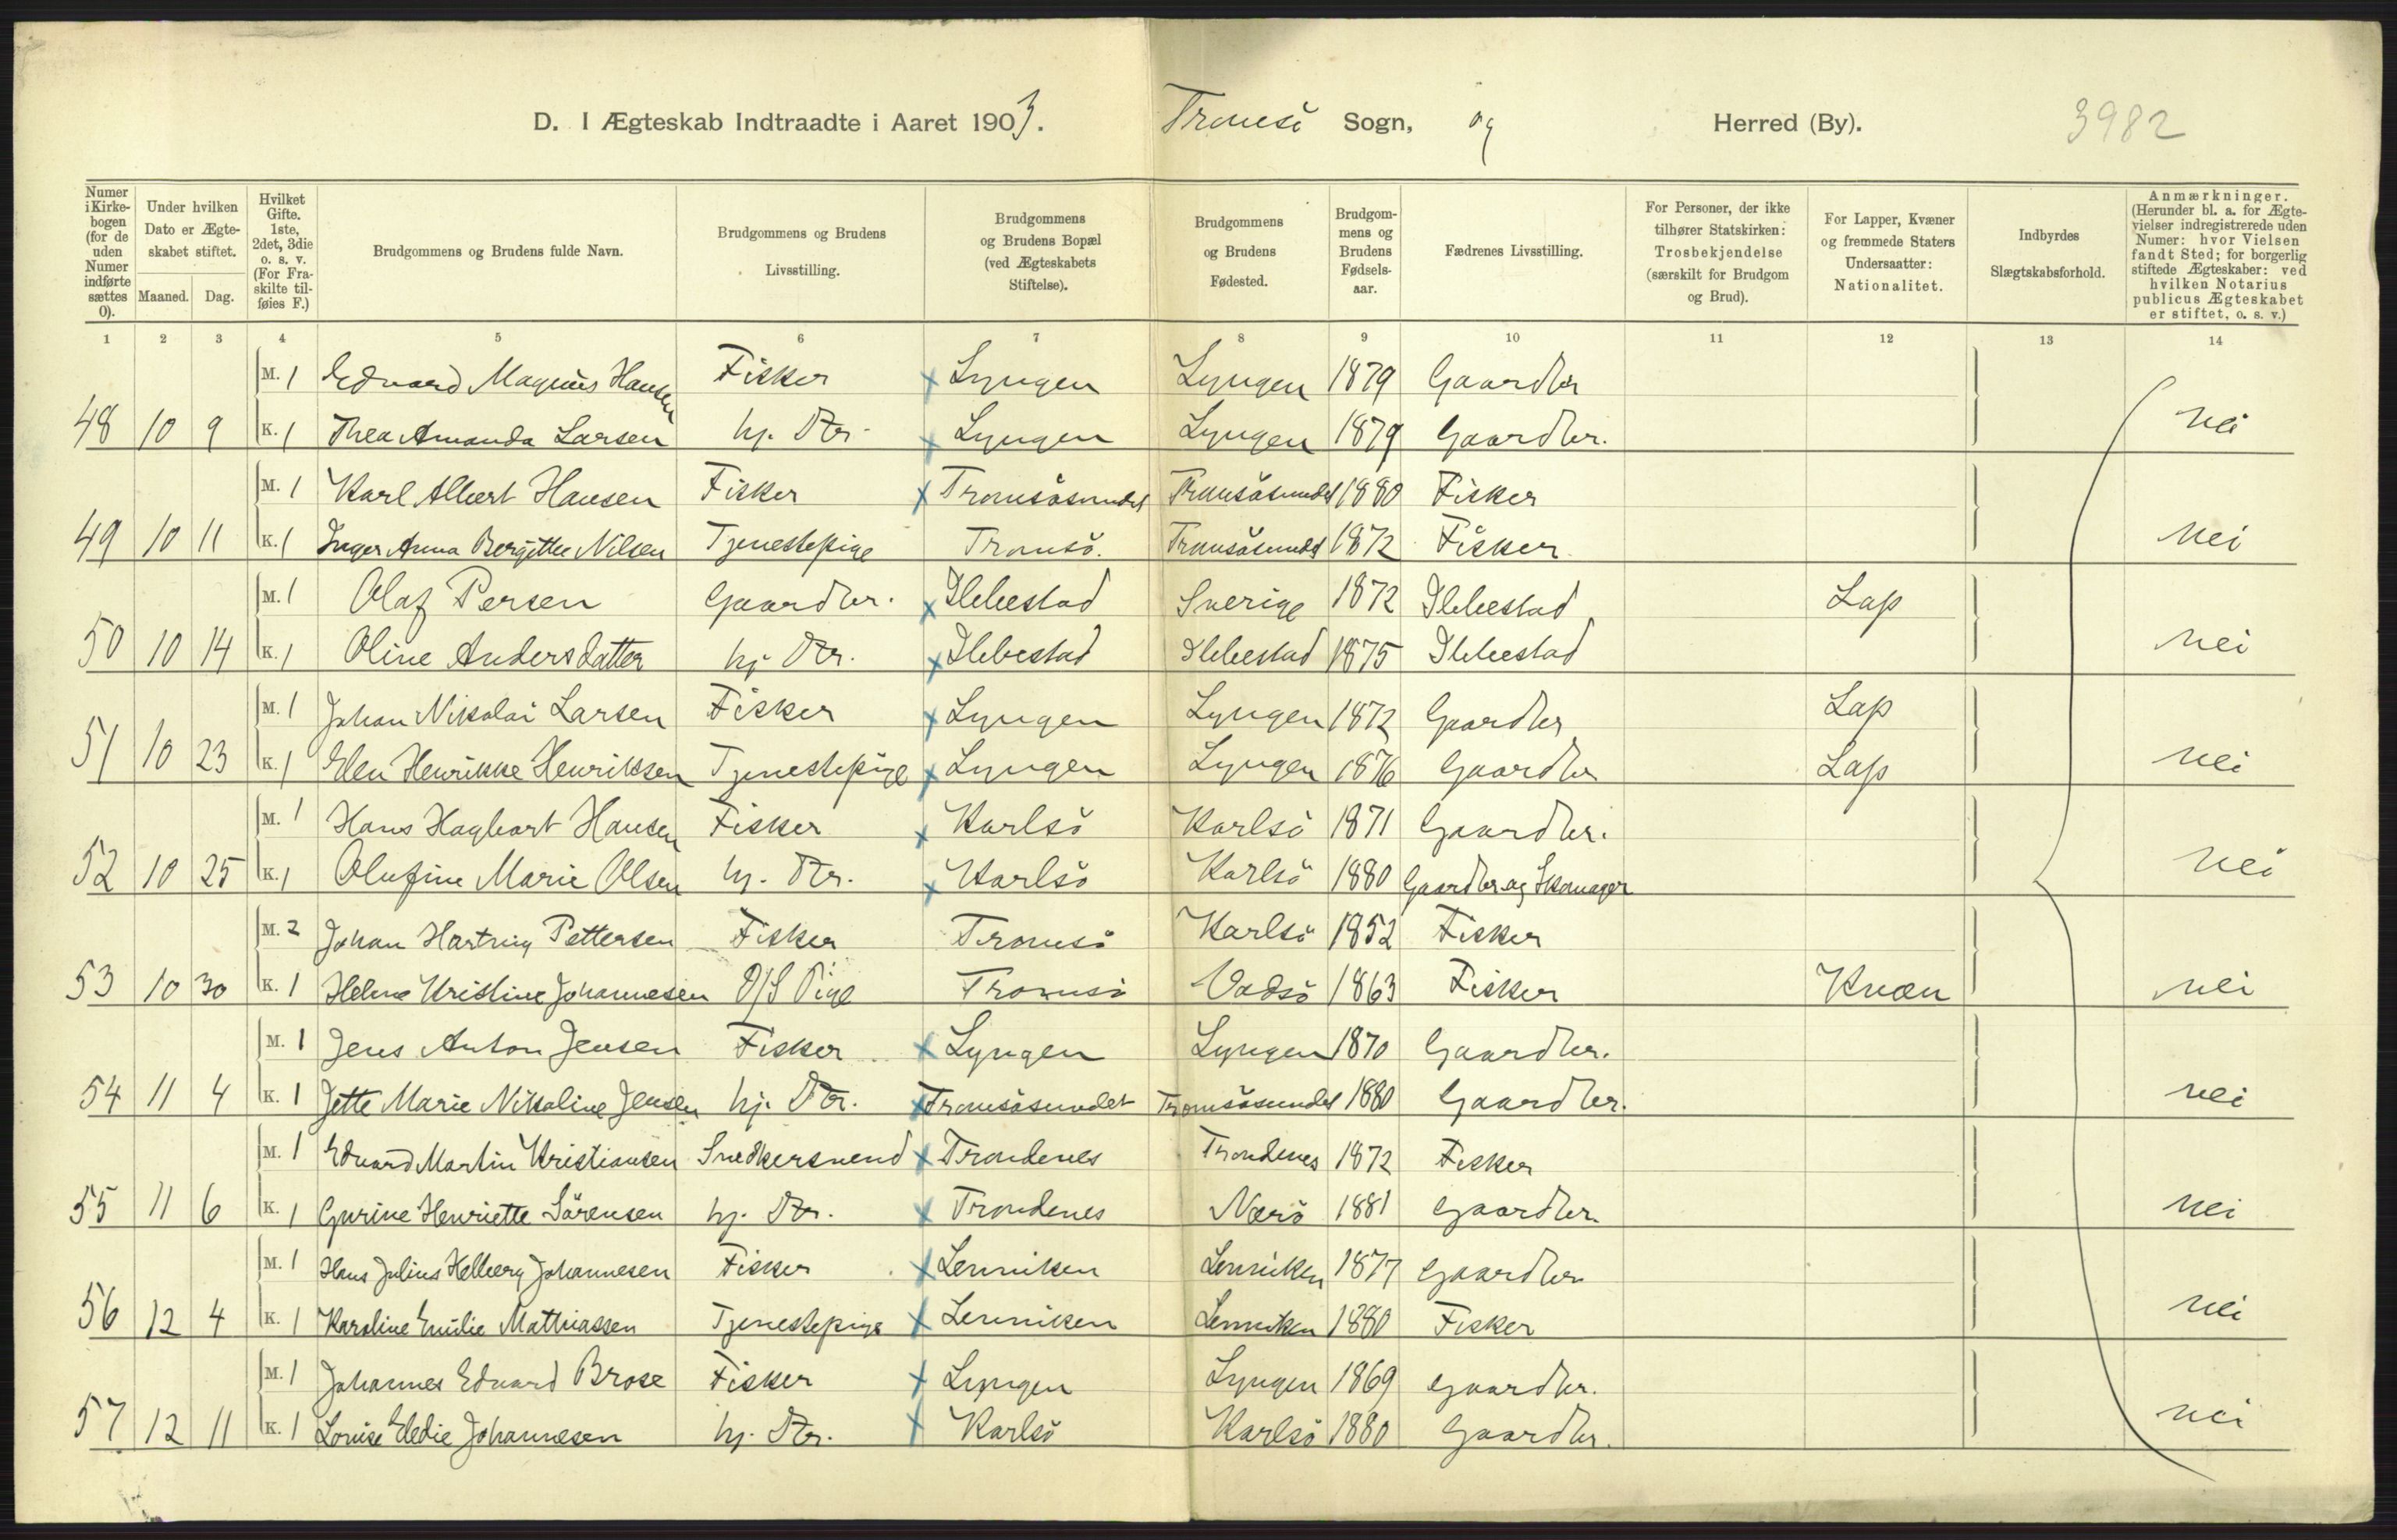 D. I Ægteskab Indtraadte i Aaret 1903. Tromsö Sogn, og Herred (By). 3982
Numer i Kirkebogen (for de uden Numer indførte sættes 0). Under hvilken Dato er Ægteskabet stiftet. Maaned. Dag. Hvilket Gifte. 1ste, 2det, 3die o. s. v. (For Fraskilte tilføies F.) Brudgommens og Brudens fulde Navn. Brudgommens og Brudens Livsstilling. Brudgommens og Brudens Bopæl (ved Ægteskabets Stiftelse). Brudgommens og Brudens Fødested. Brudgommens og Brudens Fødselsaar. Fædrenes Livsstilling. For Personer, der ikke tilhører Statskirken: Trosbekjendelse (særskilt for Brudgom og Brud). For Lapper, Kvæner og fremmede Staters Undersaatter: Nationalitet. Indbyrdes Slægtskabsforhold. Anmærkninger. (Herunder bl. a. for Ægtevielser indregistrerede uden Numer: hvor Vielsen fandt Sted; for borgerlig stiftede Ægteskaber: ved hvilken Notarius publicus Ægteskabet er stiftet, o. s. v.)
1 2 3 4 5 6 7 8 9 10 11 12 13 14
M. 1 Edvard Magnus Hansen Fisker x Lyngen Lyngen 1879 Gaardbr
48 10 9 K. 1 Thea Amanda Larsen hj. Dtr. x Lyngen Lyngen 1879 Gaardbr. nei
M. 1 Karl Albert Hansen Fisker x Tromsösundet Tromsösundet 1880 Fisker
49 10 11 K. 1 Inger Anna Bergitte Nilsen Tjenestepige Tromsö. Tromsösundet 1872 Fisker nei
M. 1 Olaf Persen Gaardbr. x Ibbestad Sverige 1872 Ibbestad Lap
50 10 14 K. 1 Oline Andersdatter hj. Dtr. x Ibbestad Ibbestad 1875 Ibbestad nei
M. 1 Johan Nikolai Larsen Fisker x Lyngen Lyngen 1872 Gaardbr Lap
51 10 23 K. 1 Elen Henrikke Henriksen Tjenestepige x Lyngen Lyngen 1876 Gaardbr Lap nei
M. 1 Hans Hagbart Hansen Fisker x Karlsö Karlsö 1871 Gaardbr.
52 10 25 K. 1 Olufine Marie Olsen hj. Dtr. x Karlsö Karlsö 1880 Gaardbr og Skomager nei
M. 2 Johan Hartvig Pettersen Fisker Tromsö Karlsö 1852 Fisker
53 10 30 K. 1 Helene Kristine Johannesen Pige Tromsö Vadsö 1863 Fisker Kvæn nei
M. 1 Jens Anton Jensen Fisker x Lyngen Lyngen 1870 Gaardbr.
54 11 4 K. 1 Jette Marie Nikoline Jensen hj. Dtr. x Tromsösundet Tromsösundet 1880 Gaardbr. nei
M. 1 Edvard Martin Kristiansen Snedkersvend x Trondenes Trondenes 1872 Fisker
55 11 6 K. 1 Gurine Henriette Sörensen hj. Dtr. x Trondenes Nærö 1881 Gaardbr. nei
M. 1 Hans Julius Helberg Johannesen Fisker x Lenviken Lenviken 1877 Gaardbr
56 12 4 K. 1 Karoline Emilie Mathiassen Tjenestepige x Lenviken Lenviken 1880 Fisker nei
M. 1 Johannes Edvard Brose Fisker x Lyngen Lyngen 1869 Gaardbr.
57 12 11 K. 1 Lovise Johannesen hj. Dtr. x Karlsö Karlsö 1880 Gaardbr. nei